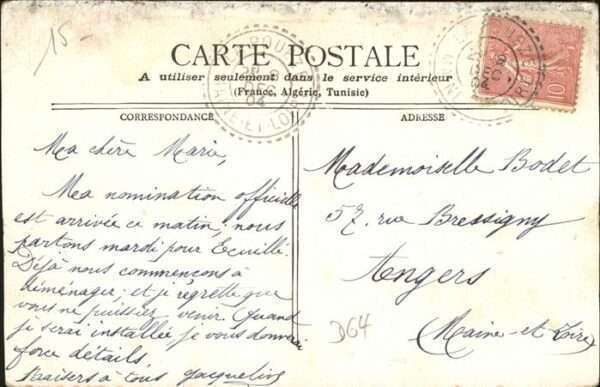 15-
CARTE POSTALE
A utiliser seulement dans le service intérieur
(France, Algérie, Tunisie)
CORRESPONDANCE
ADRESSE
Ma chère Marie,
Ma nomination officielle
est arrivée ce matin; nous
partons mardi pour Ecuillé.
Déjà nous commençons à
déménager, et je regrette que
vous ne puissiez venir. Quand
je serai installée je vous donnerai
force détails.
Baisers à tous Jacqueline
Mademoiselle Bodet
57, rue Bressigny
Angers
(Maine-et-Loire
D64
04
10